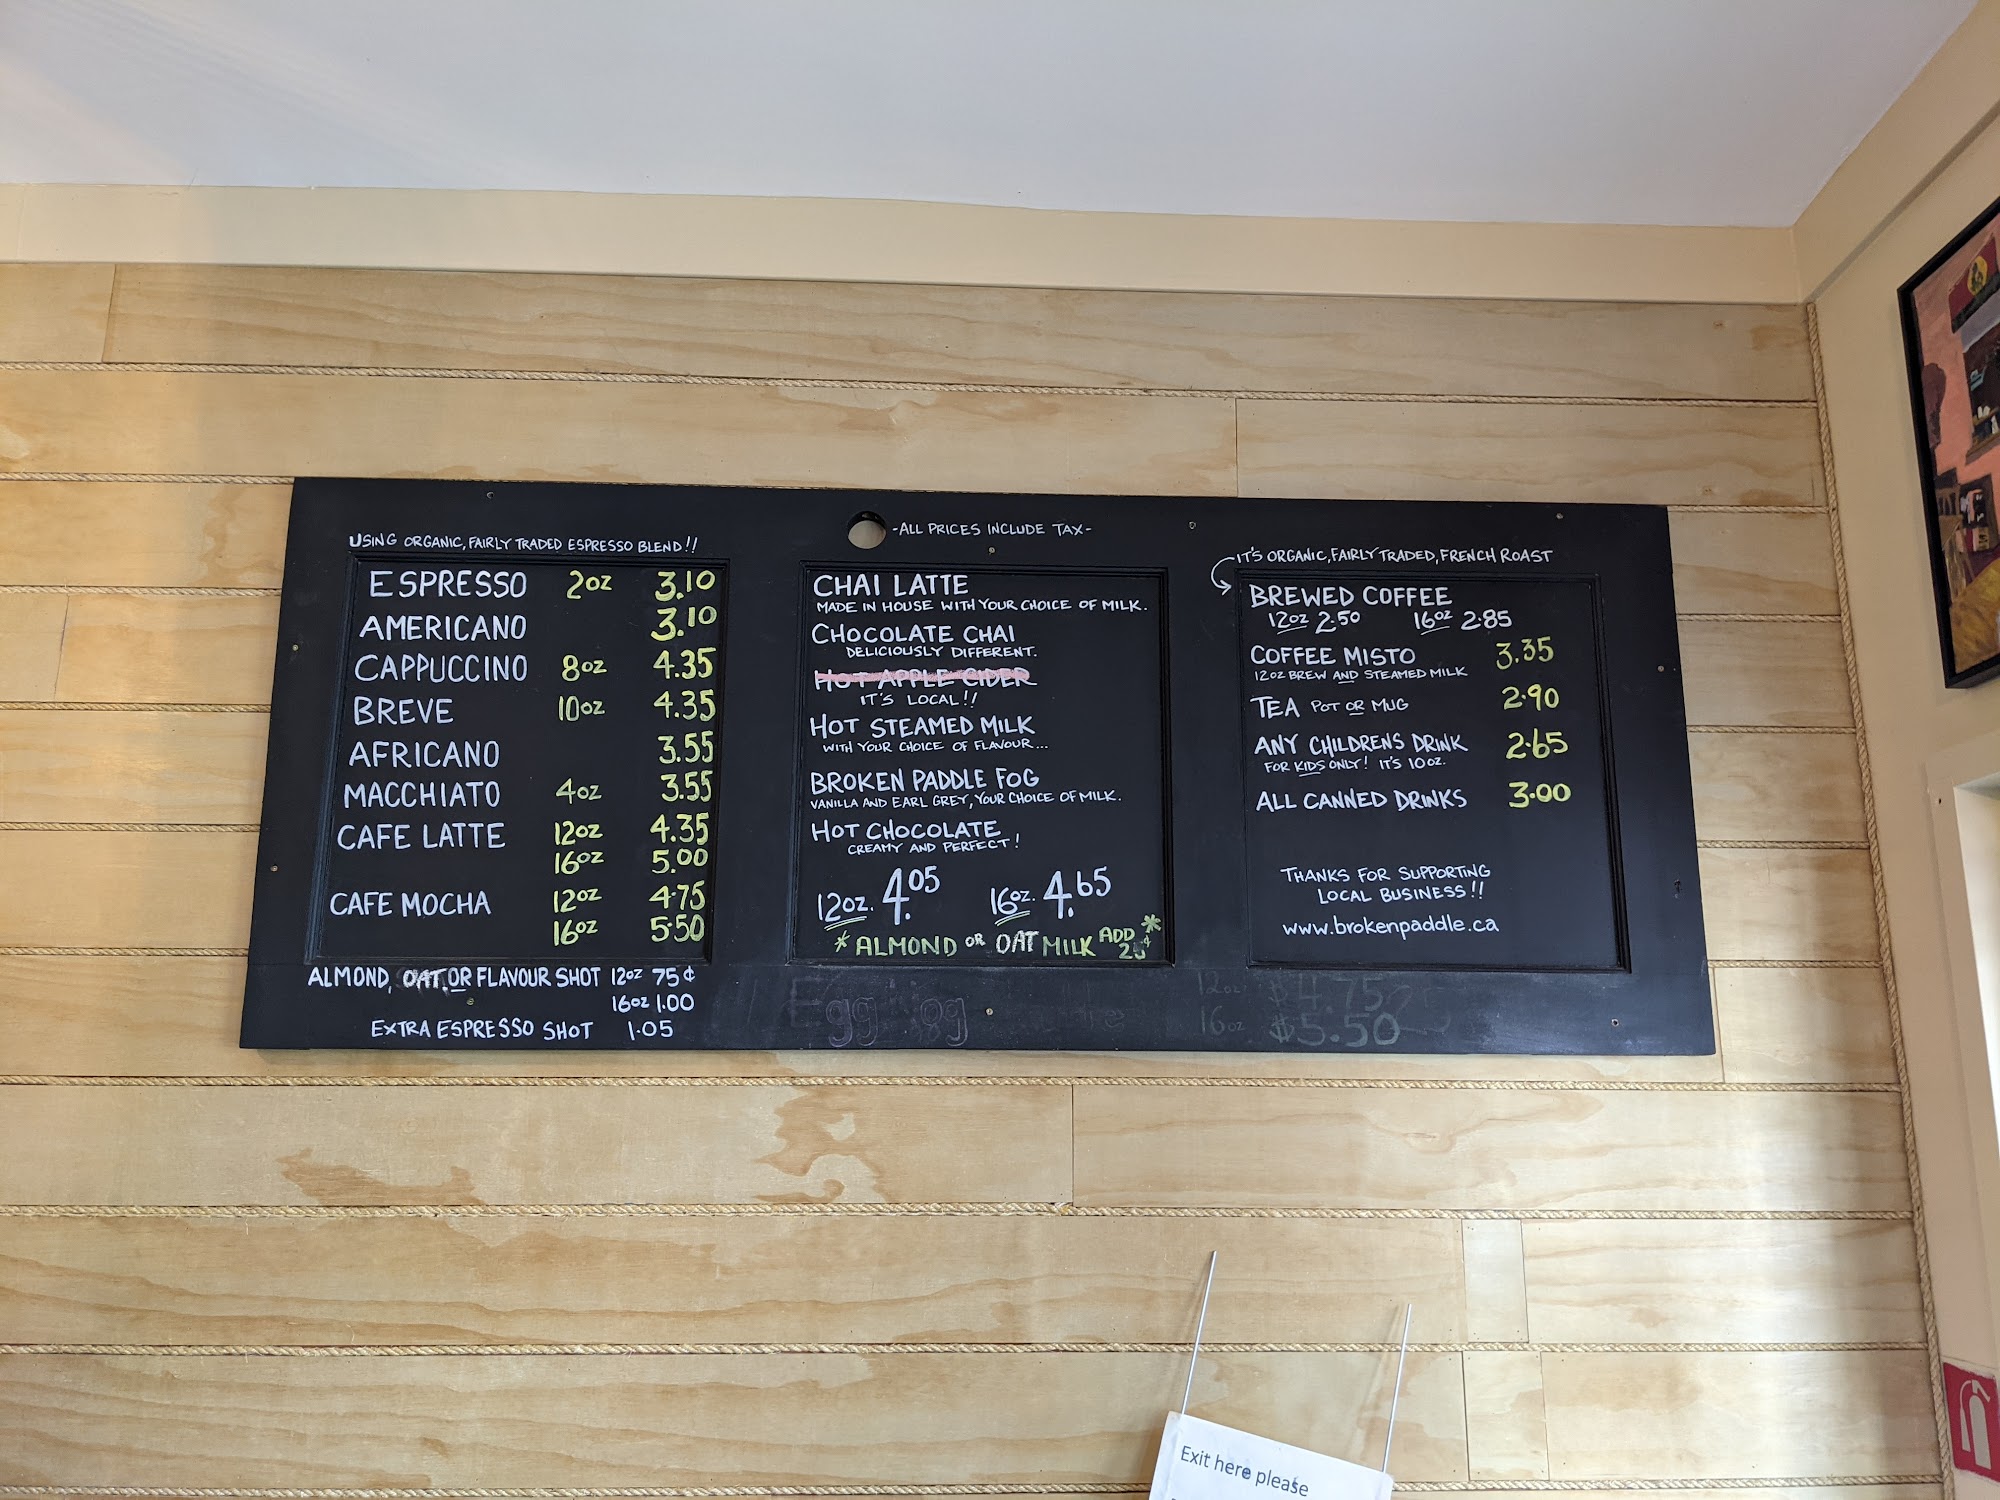 USING ORGANIC, FAIRLY TRADED ESPRESSO BLEND!!
ESPRESSO 2oz 3.10
AMERICANO 3.10
CAPPUCCINO 8oz 4.35
BREVE 10oz 4.35
AFRICANO 3.55
MACCHIATO 4oz 3.55
CAFE LATTE 12oz 4.35
16oz 5.00
CAFE MOCHA 12oz 4.75
16oz 5.50
ALMOND, OAT OR FLAVOUR SHOT 12oz 75¢
16oz 1.00
EXTRA ESPRESSO SHOT 1.05
-ALL PRICES INCLUDE TAX-
CHAI LATTE
MADE IN HOUSE WITH YOUR CHOICE OF MILK.
CHOCOLATE CHAI
DELICIOUSLY DIFFERENT.
HOT APPLE CIDER
IT'S LOCAL!!
HOT STEAMED MILK
WITH YOUR CHOICE OF FLAVOUR...
BROKEN PADDLE FOG
VANILLA AND EARL GREY, YOUR CHOICE OF MILK.
HOT CHOCOLATE
CREAMY AND PERFECT!
12oz. 4.05 16oz. 4.65
*ALMOND OR OAT MILK ADD 25¢*
IT'S ORGANIC, FAIRLY TRADED, FRENCH ROAST
BREWED COFFEE
12oz 2.50 16oz 2.85
COFFEE MISTO 3.35
12oz BREW AND STEAMED MILK
TEA POT OR MUG 2.90
ANY CHILDRENS DRINK 2.65
FOR KIDS ONLY! IT'S 10oz.
ALL CANNED DRINKS 3.00
THANKS FOR SUPPORTING
LOCAL BUSINESS!!
www.brokenpaddle.ca
Egg Nog
12oz $4.75
16oz $5.50
Exit here please